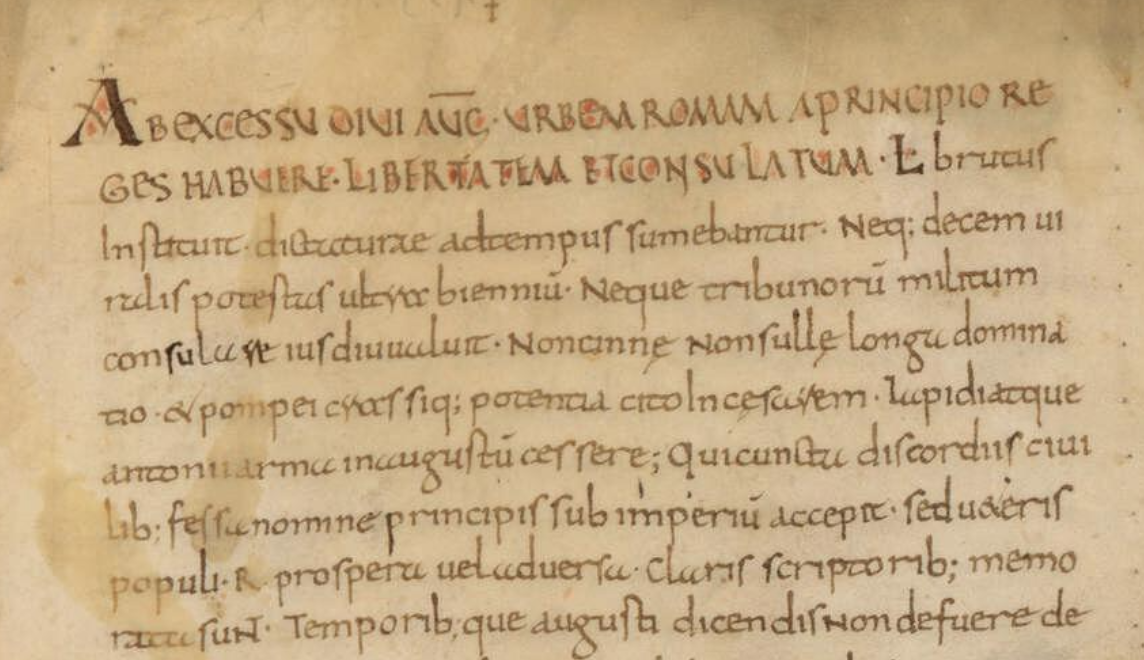 AB EXCESSU DIVI AUG· URBEM ROMAM A PRINCIPIO RE
GES HABUERE· LIBERTATEM ET CONSULATUM· L brutus
Instituit· dictaturae adtempus sumebantur· Neq; decem ui
ralis potestas ultra bienniū· Neque tribunorū militum
consulare ius diu ualuit· Non cinnę Non sullę longa domina
tio· & pompei crassiq; potentia cito In cęsarem· lapidi atque
antonii arma in augustū cessere; Qui cuncta discordiis ciui
lib; fessa nomine principis sub imperiū accepit· sed ueteris
populi· R· prospera uel aduersa· Claris scriptorib; memo
rata suNt· Temporib; que augusti dicendis Non defuere de